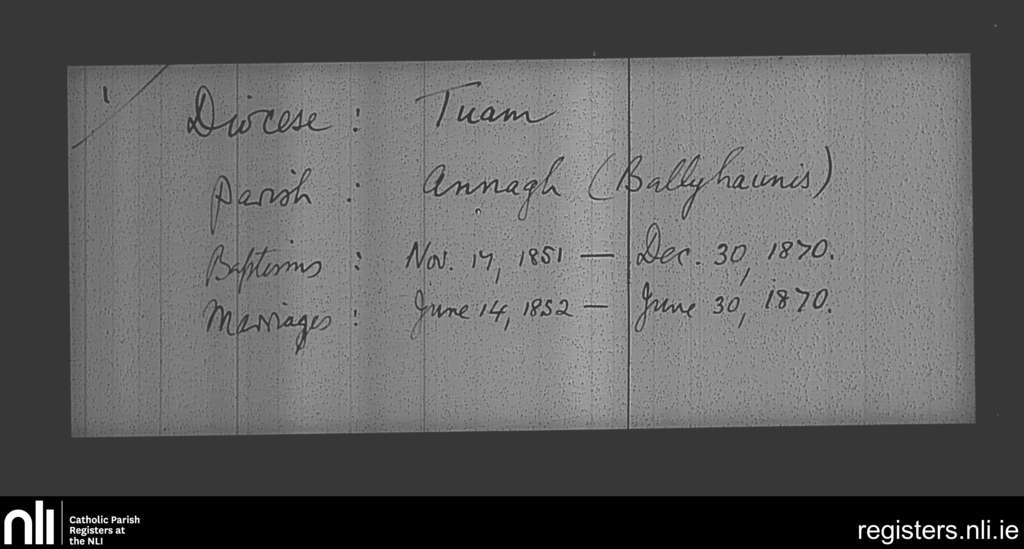 1
Diocese : Tuam
Parish : Annagh (Ballyhaunis)
Baptisms : Nov. 17, 1851 — Dec. 30, 1870.
Marriages : June 14, 1852 — June 30, 1870.
nli
Catholic Parish
Registers at
the NLI
registers.nli.ie